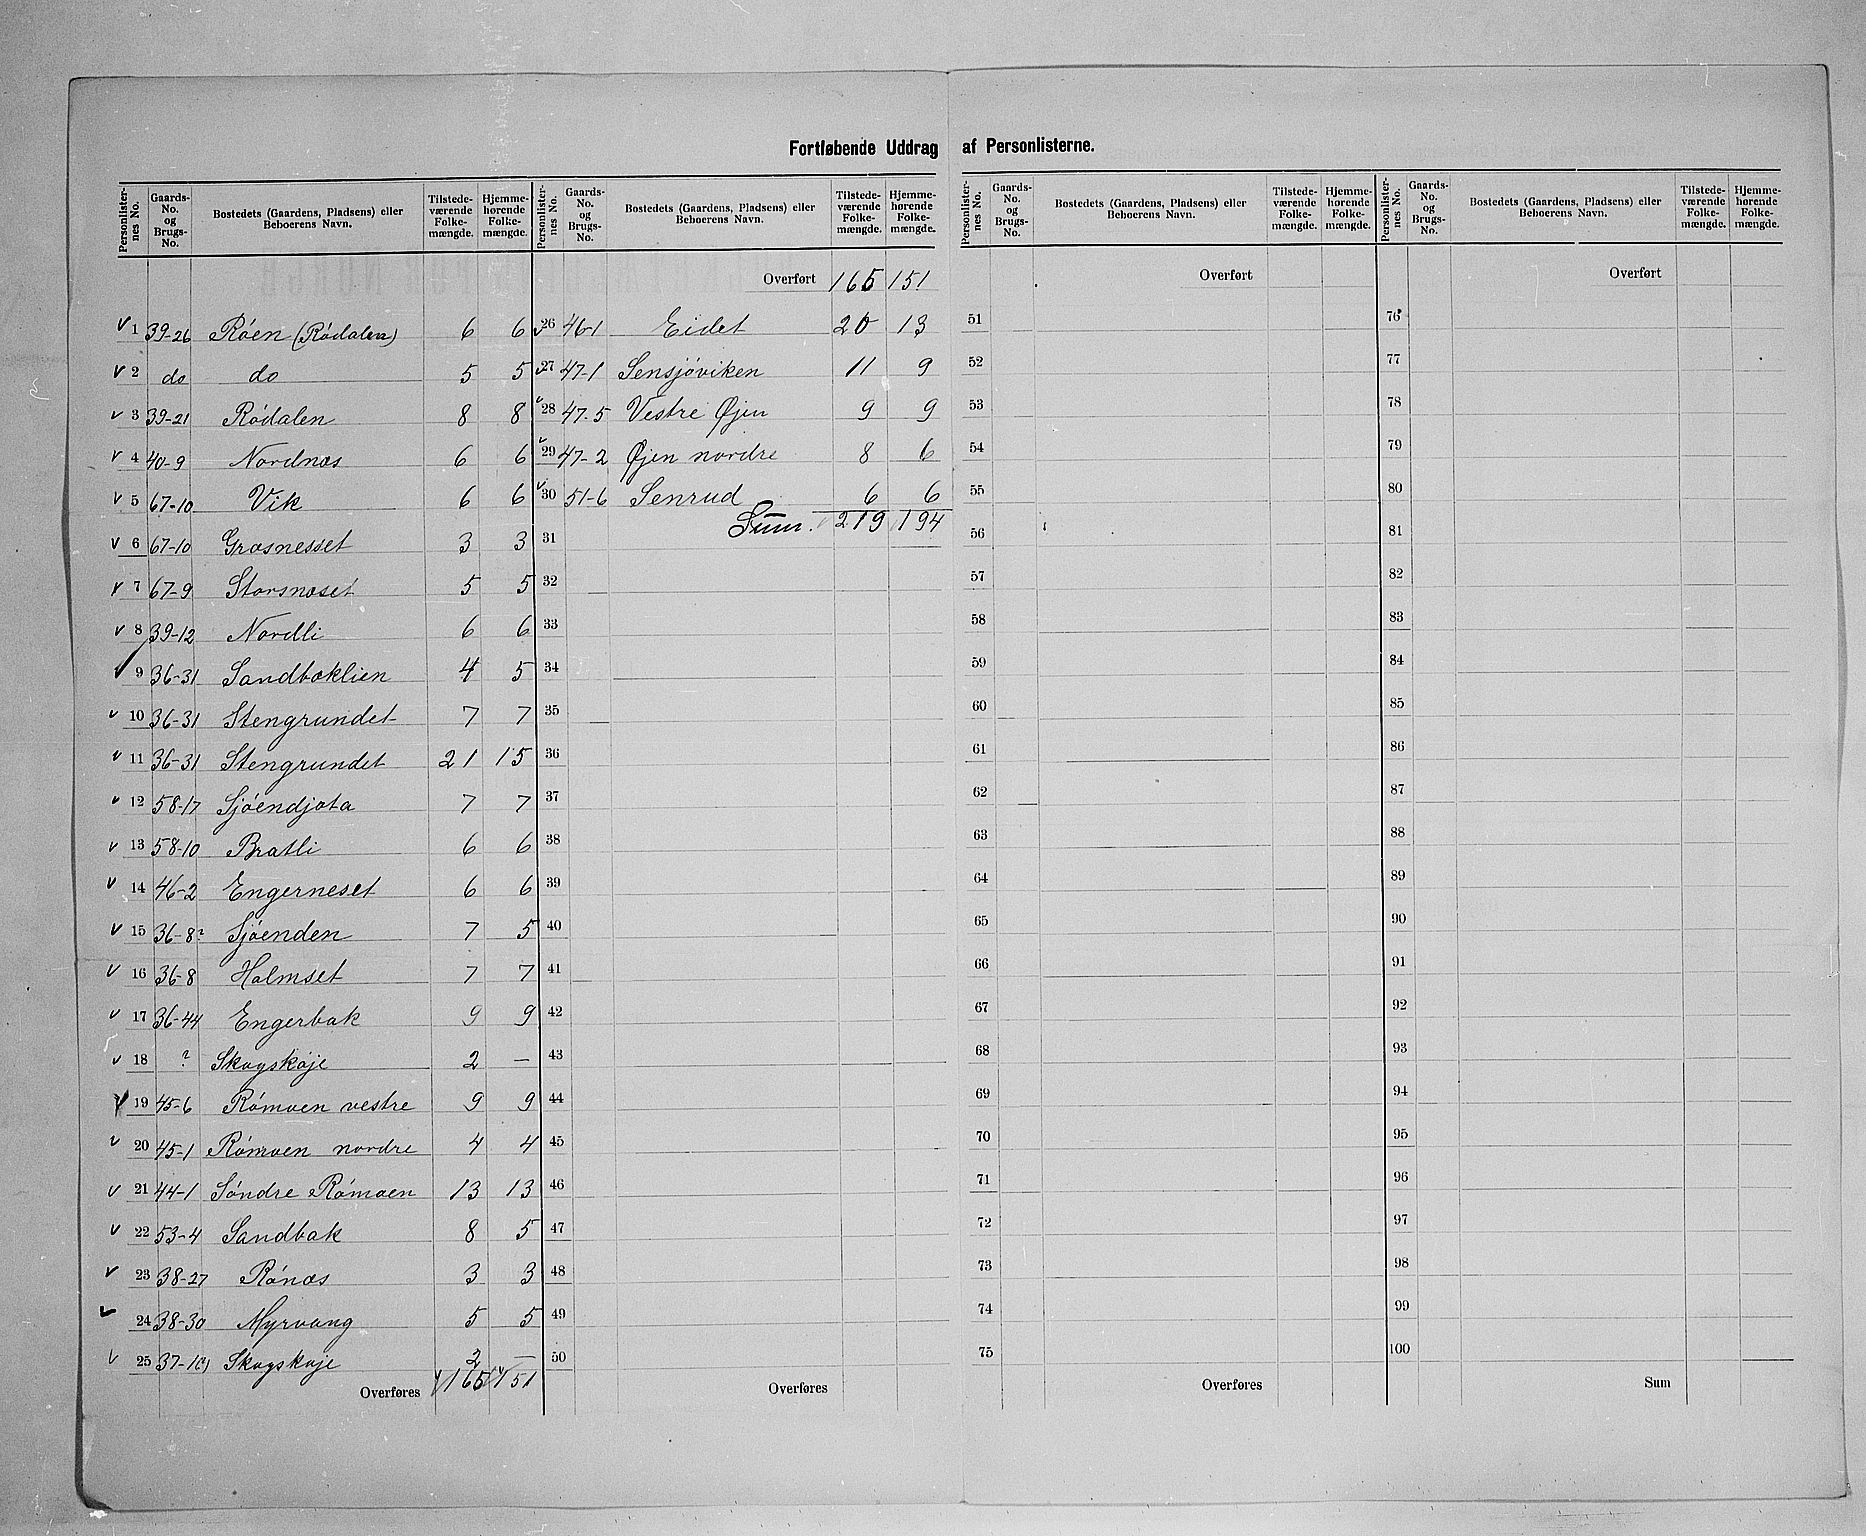 Fortløbende Uddrag af Personlisterne.
Personlister-nes No. Gaards-No. og Brugs-No. Bostedets (Gaardens, Pladsens) eller Beboerens Navn. Tilstede-værende Folke-mængde. Hjemme-hørende Folke-mængde.
1 39-26 Röen (Rödalen) 6 6
2 do do 5 5
3 39-21 Rödalen 8 8
4 40-9 Nordnæs 6 6
5 67-10 Vik 6 6
6 67-10 Græsnesset 3 3
7 67-9 Storsnæset 5 5
8 39-12 Nordli 6 6
9 36-31 Sandbæklien 4 5
10 36-31 Stengrundet 7 7
11 36-31 Stengrundet 21 15
12 58-17 Sjöendjota 7 7
13 58-10 Bratli 6 6
14 46-2 Engerneset 6 6
15 36-8? Sjöenden 7 5
16 36-8 Holmset 7 7
17 36-44 Engerbæk 9 9
18 ? Skogskoje 2 —
19 45-6 Römoen vestre 9 9
20 45-1 Römoen nordre 4 4
21 44-1 Söndre Römoen 13 13
22 53-4 Sandbæk 8 5
23 38-27 Rönæs 3 3
24 38-30 Myrvang 5 5
25 37-1(?) Skogskoje 2 —
Overføres 165 151
Personlister-nes No. Gaards-No. og Brugs-No. Bostedets (Gaardens, Pladsens) eller Beboerens Navn. Tilstede-værende Folke-mængde. Hjemme-hørende Folke-mængde.
Overført 165 151
26 46-1 Eidet 20 13
27 47-1 Sensjöviken 11 9
28 47-5 Vestre Øjen 9 9
29 47-2 Øjen nordre 8 6
30 51-6 Senrud 6 6
Sum. 219 194
31
32
33
34
35
36
37
38
39
40
41
42
43
44
45
46
47
48
49
50
Overføres
Personlister-nes No. Gaards-No. og Brugs-No. Bostedets (Gaardens, Pladsens) eller Beboerens Navn. Tilstede-værende Folke-mængde. Hjemme-hørende Folke-mængde.
Overført
51
52
53
54
55
56
57
58
59
60
61
62
63
64
65
66
67
68
69
70
71
72
73
74
75
Overføres
Personlister-nes No. Gaards-No. og Brugs-No. Bostedets (Gaardens, Pladsens) eller Beboerens Navn. Tilstede-værende Folke-mængde. Hjemme-hørende Folke-mængde.
Overført
76
77
78
79
80
81
82
83
84
85
86
87
88
89
90
91
92
93
94
95
96
97
98
99
100
Sum